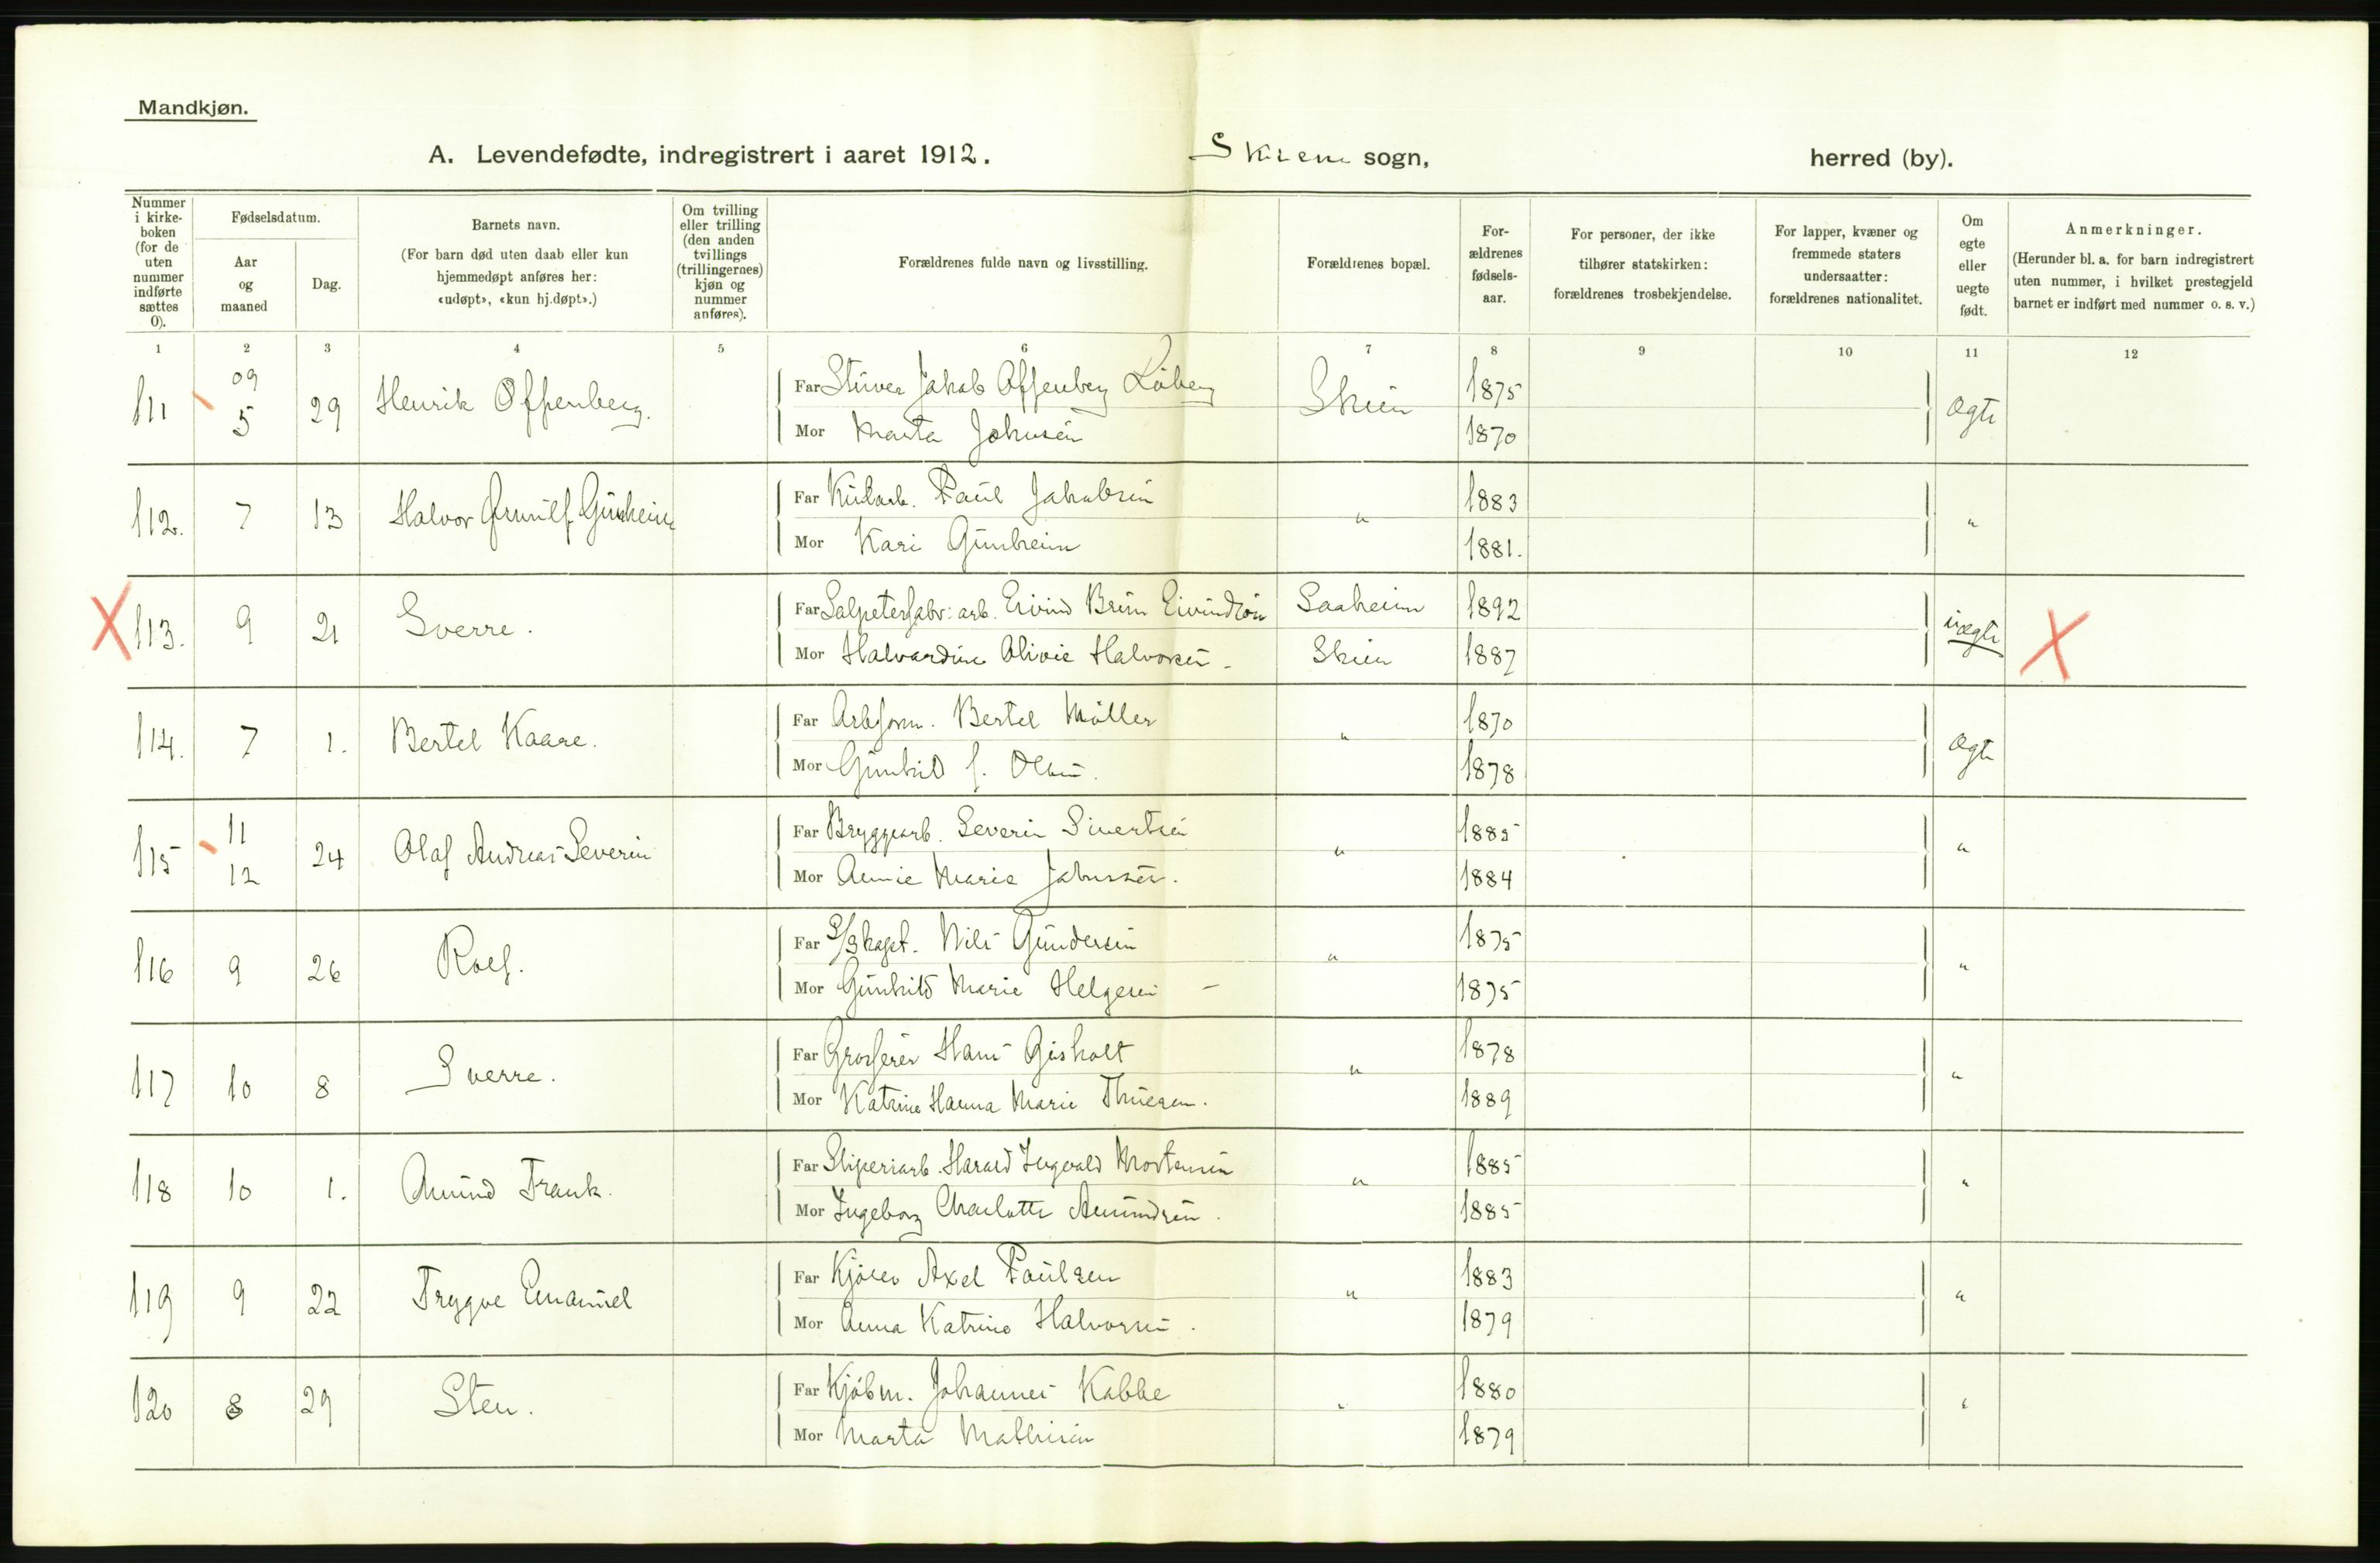 Mandkjøn.
A. Levendefødte, indregistrert i aaret 1912. Skien sogn, herred (by).
Nummer i kirkeboken (for de uten nummer indførte sættes 0).
Fødselsdatum.
Aar og maaned
Dag.
Barnets navn.
(For barn død uten daab eller kun hjemmedøpt anføres her: «udøpt», «kun hj.døpt».)
Om tvilling eller trilling (den anden tvillings (trillingernes) kjøn og nummer anføres).
Forældrenes fulde navn og livsstilling.
Forældrenes bopæl.
Forældrenes fødselsaar.
For personer, der ikke tilhører statskirken: forældrenes trosbekjendelse.
For lapper, kvæner og fremmede staters undersaatter: forældrenes nationalitet.
Om egte eller uegte født.
Anmerkninger.
(Herunder bl. a. for barn indregistrert uten nummer, i hvilket prestegjeld barnet er indført med nummer o. s. v.)
1 2 3 4 5 6 7 8 9 10 11 12
111 09 5 29 Henrik Offenberg. Far Stuver Jakob Offenberg Löberg Skien 1875 Ægte
Mor Marta Johnsen 1870
112. 7 13 Halvor Ørnulf Gunheim Far Paul Jakobsen " 1883 "
Mor Kari Gunheim 1881.
X 113. 9 21 Sverre. Far Salpeterfabr: arb. Eivind Brun Eivindson Saaheim 1892 uægte X
Mor Halvardine Olivie Halvorsen - Skien 1887
114. 7 1. Bertel Kaare. Far Arbform. Bertel Møller " 1870 Ægte
Mor Gunhild f. Olsen. 1878
115 11 12 24 Olaf Andreas Severin Far Bryggearb. Severin Sivertsen " 1885 "
Mor Annie Marie Johnsen. 1884
116 9 26 Rolf. Far D/Skapt. Nils Gundersen " 1875 "
Mor Gunhild Marie Helgesen - 1875
117 10 8 Sverre. Far Grosserer Hans Gisholt " 1878 "
Mor Katrine Hanna Marie Thuesen. 1889
118 10 1. Amund Frank. Far Sliperiarb. Harald Ingvald Mortensen " 1885 "
Mor Ingeborg Charlotte Amundsen. 1885
119 9 22 Trygve Emanuel Far Kjører Axel Paulsen " 1883 "
Mor Anna Katrine Halvorsen. 1879
120 8 29 Sten. Far Kjøbm. Johannes Kabbe " 1880 "
Mor Marta Mathisen 1879